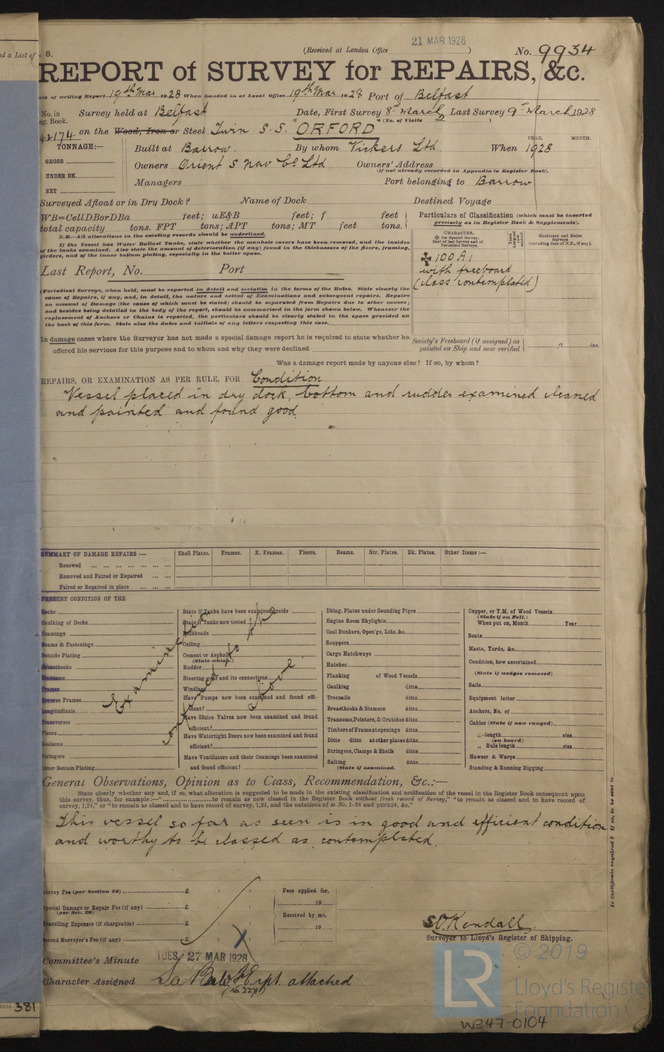 d a List of
- 8.
(Received at London Office
21 MAR 1928
)
No. 9934
REPORT of SURVEY for REPAIRS, &c.
of writing Report 19th Mar 1928 When handed in at Local Office 19th Mar 1928 Port of Belfast
No. in Survey held at Belfast Date, First Survey 8th March Last Survey 9th March 1928
Reg. Book. (No. of Visits 2 )
42174 on the Wood, Iron or Steel Twin S.S. ORFORD
TONNAGE:— Built at Barrow. By whom Vickers Ltd. When 1928
YEAR. MONTH.
GROSS
Owners Orient S Nav Co Ltd Owners' Address
(If not already recorded in Appendix to Register Book).
UNDER DK.
NET
Managers Port belonging to Barrow
Surveyed Afloat or in Dry Dock? Name of Dock Destined Voyage
WB=CellDBorDBa feet; uE&B feet; f feet
total capacity tons. FPT tons; APT tons; MT feet tons.
N.B.—All alterations in the existing records should be underlined.
If the Vessel has Water Ballast Tanks, state whether the manhole covers have been removed, and the insides
of the tanks examined. Also state the amount of deterioration (if any) found in the thicknesses of the floors, framing,
girders, and of the inner bottom plating, especially in the boiler space.
Particulars of Classification (which must be inserted
precisely as in Register Book & Supplements).
CHARACTER.
Machinery and Boiler
Surveys
✠ 100A1
with freeboard
(class contemplated)
Last Report, No. Port
(Periodical Surveys, when held, must be reported in detail and seriatim in the terms of the Rules. State clearly the
cause of Repairs, if any, and, in detail, the nature and extent of Examinations and subsequent repairs. Repairs
on account of Damage (the cause of which must be stated) should be separated from Repairs due to other causes;
and besides being detailed in the body of the report, should be summarized in the form shown below. Whenever the
replacement of Anchors or Chains is reported, the particulars should be clearly stated in the space provided on
the back of this form. State also the dates and initials of any letters respecting this case.
In damage cases where the Surveyor has not made a special damage report he is required to state whether he
offered his services for this purpose and to whom and why they were declined
Society's Freeboard (if assigned) as
painted on Ship and now verified ft. ins.
Was a damage report made by anyone else? If so, by whom?
REPAIRS, OR EXAMINATION AS PER RULE, FOR Condition
Vessel placed in dry dock, bottom and rudder examined cleaned
and painted and found good.
SUMMARY OF DAMAGE REPAIRS :—
Shell Plates. Frames. R. Frames. Floors. Beams. Str. Plates. Bk. Plates. Other Items :—
Renewed
Removed and Faired or Repaired
Faired or Repaired in place
PRESENT CONDITION OF THE
Decks
Caulking of Decks
Coamings
Beams & Fastenings
Outside Plating
Breasthooks
Frames
Reverse Frames
Longitudinals
Transverses
Floors
Keelsons
Stringers
Inner Bottom Plating
State if Tanks have been examined inside
State if Tanks now tested
Bulkheads
Ceiling
Cement or Asphalt
(State which)
Rudder
Steering gear and its connections
Windlass
Have Pumps now been examined and found effi-
cient?
Have Sluice Valves now been examined and found
efficient?
Have Watertight Doors now been examined and found
efficient?
Have Ventilators and their Coamings been examined
and found efficient?
Examination
confined to the
above
Dblng. Plates under Sounding Pipes
Engine Room Skylights
Coal Bunkers, Open'gs, Lids, &c.
Scuppers
Cargo Hatchways
Hatches
Planking of Wood Vessels
Caulking ditto
Treenails ditto
Breasthooks & Stemson ditto
Transoms, Pointers, & Crutches ditto
Timbers of Frames at openings ditto
Ditto ditto at other places ditto
Stringers, Clamps & Shelfs ditto
Salting ditto
(State if examined.
Copper, or Y.M. of Wood Vessels
(State if on Felt.)
When put on, Month Year
Boats
Masts, Yards, &c.
Condition, how ascertained
(State if wedges removed)
Sails
Equipment letter
Anchors, No. of
Cables (State if now ranged)
„ length size
(on board)
„ Rule length size
Hawser & Warps
Standing & Running Rigging
General Observations, Opinion as to Class, Recommendation, &c.:—
State clearly whether any and, if so, what alteration is suggested to be made in the existing classification and notification of the vessel in the Register Book consequent upon
this survey, thus, for example :—" to remain as now classed in the Register Book without fresh record of Survey," "to remain as classed and to have record of
This vessel so far as seen is in good and efficient condition
and worthy to be classed as contemplated.
Survey Fee (per Section 29) £
Special Damage or Repair Fee (if any) £
(per Sec. 29)
Travelling Expenses (if chargeable) £
Second Surveyor's Fee (if any) £
Fees applied for,
19
Received by me,
19
Kendall
Surveyor to Lloyd's Register of Shipping.
Committee's Minute TUES. 27 MAR 1928
Character Assigned
Rpt attached
Is Certificate required? If so, to be sent to
381
LR
© 2019
Lloyd's Register
Foundation
W347-0104